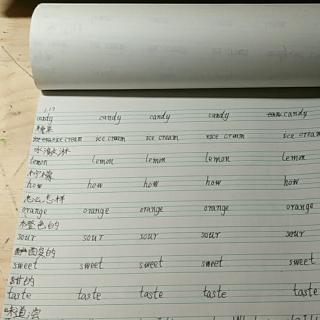 1.17
candy candy candy candy candy
糖果
ice cream ice cream ice cream ice cream ice cream
冰淇淋
lemon lemon lemon lemon lemon
柠檬
how how how how how
怎么,怎样
orange orange orange orange orange
橙色的
sour sour sour sour sour
酸的
sweet sweet sweet sweet sweet
甜的
taste taste taste taste taste
味道;尝